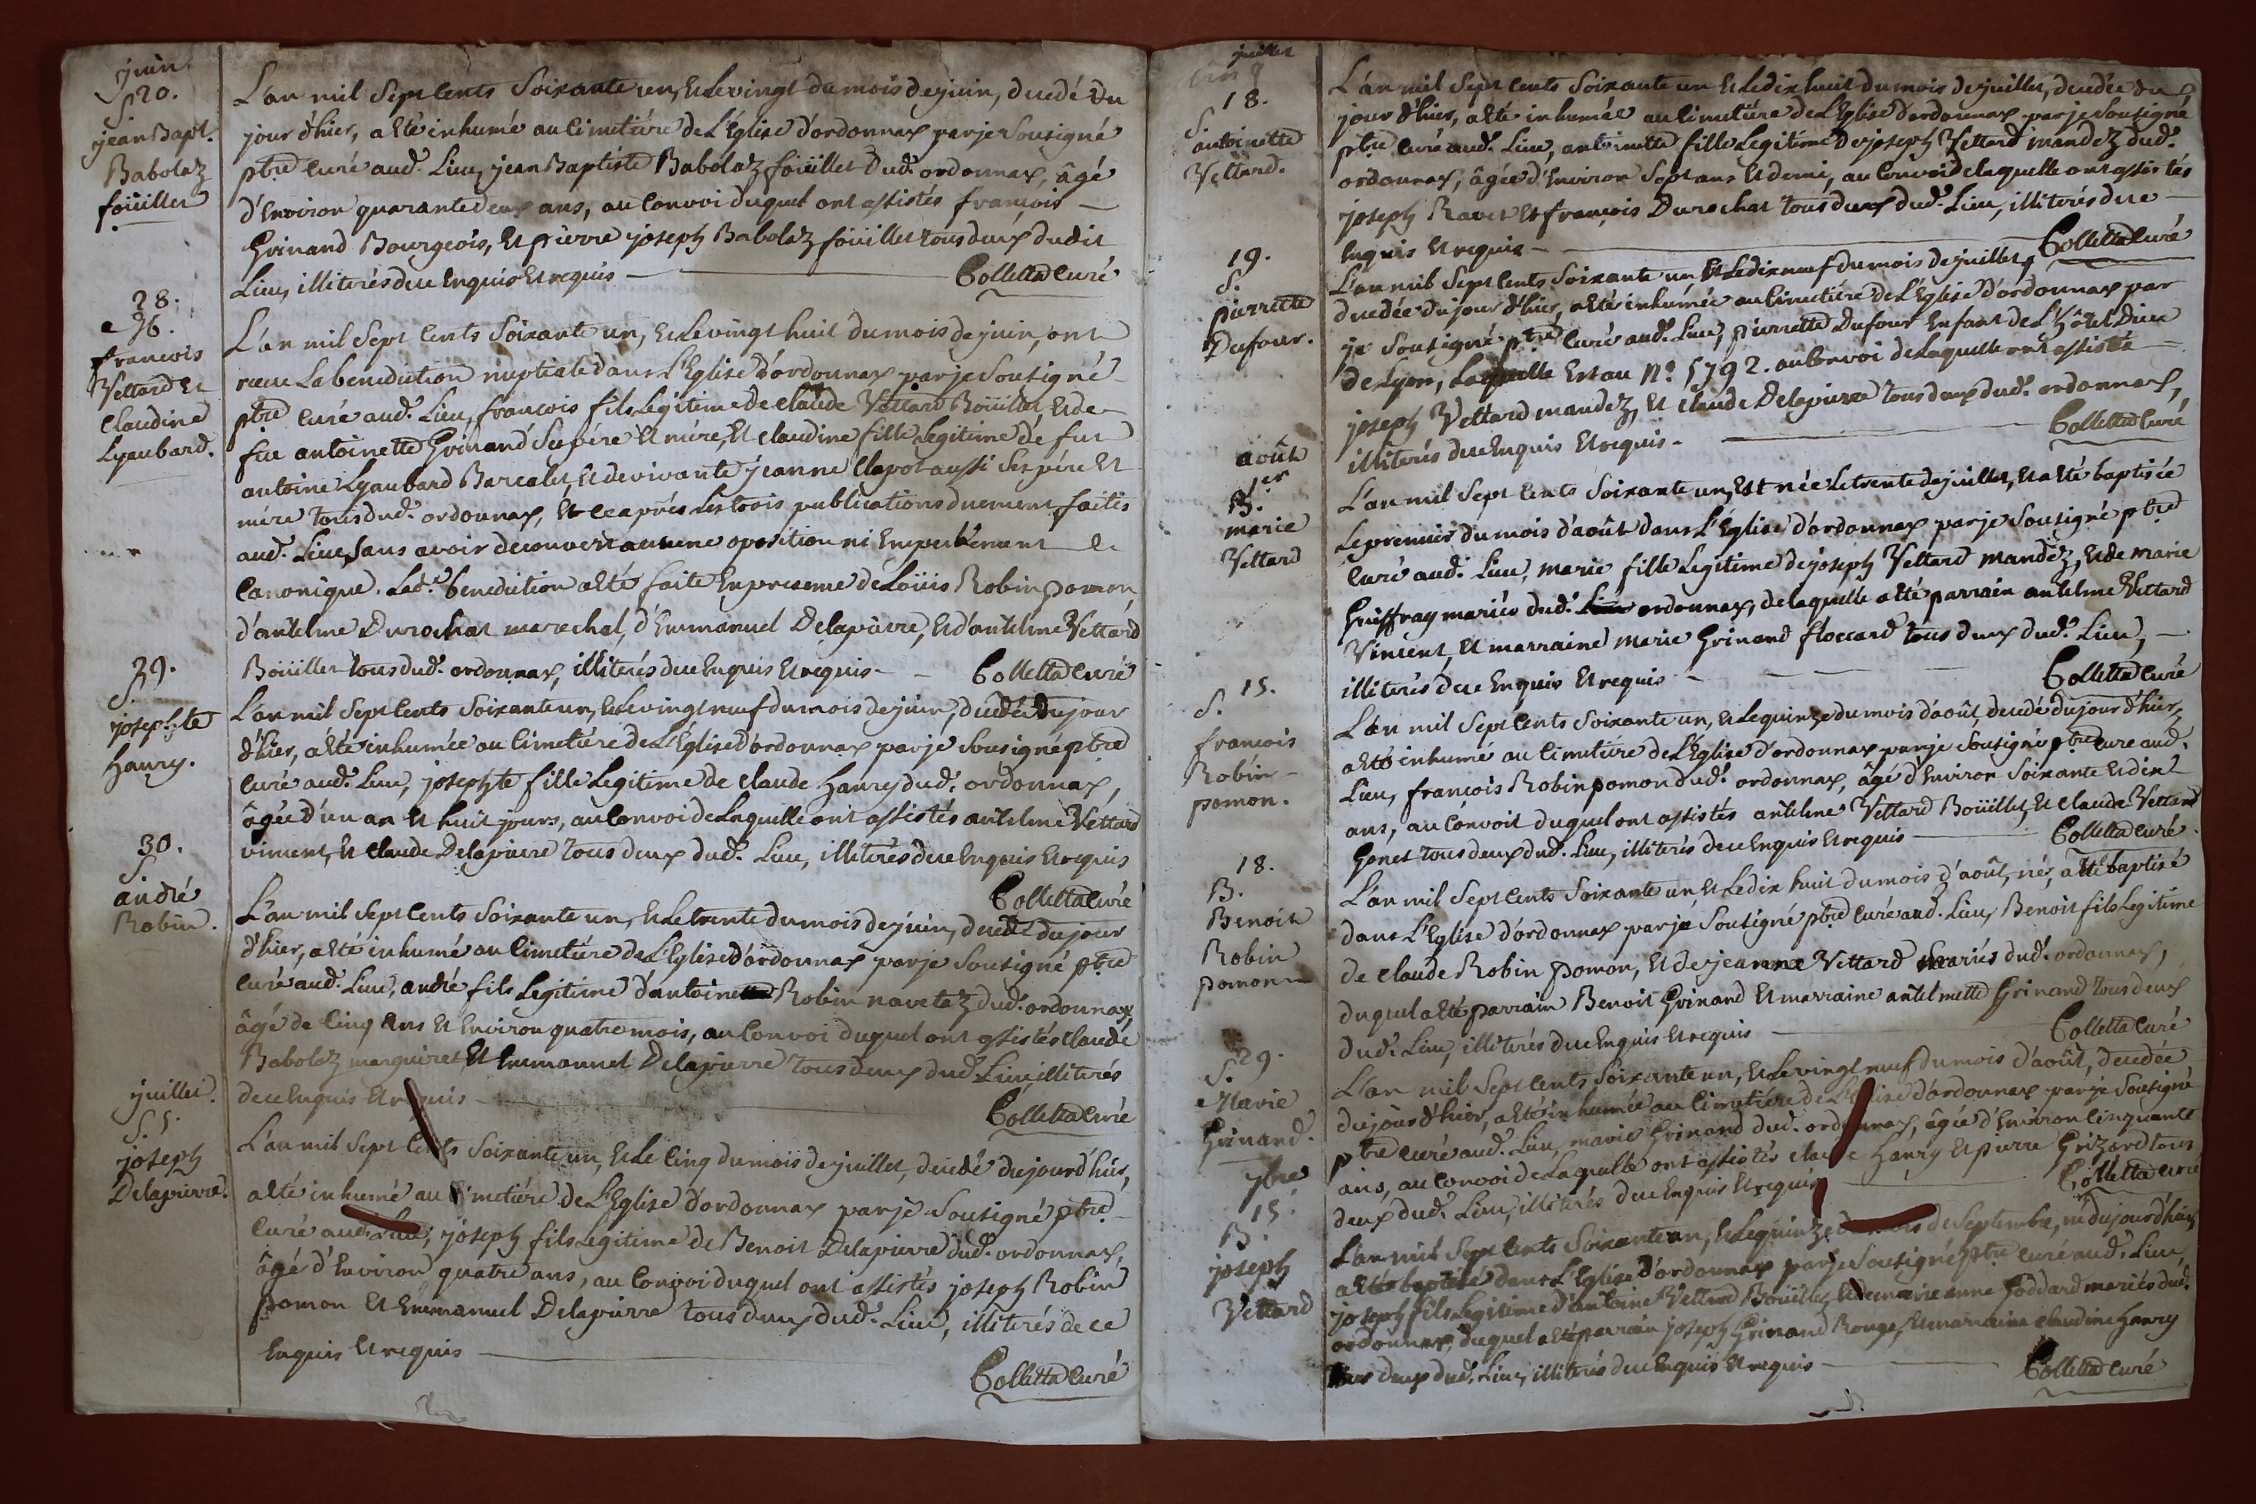 juin
S 20.
jean Bapt.
Babolaz
foüillet
L'an mil Sept Cents Soixante un, Et Le vingt du mois de juin, decedé du
jour d'hier, a Eté inhumé au Cimetiére de L'Eglise d'ordonnax par je Sousigné
ptre Curé aud. Lieu, jean Baptiste Babolaz foüillet dud. ordonnax, âgé
d'Environ quarante deux ans, au Convoi duquel ont assistés françois
Grinand Bourgeois, Et pierre joseph Babolaz foüillet tous deux dudit
Lieu, illiterés de ce Enquis Et requis Colletta Curé
28.
M.
francois
Vettard Et
Claudine
Lyaubard.
L'an mil Sept Cents Soixante un, Et Le vingt huit du mois de juin, ont
recue La benediction nuptiale dans L'Eglise d'ordonnax par je Sousigné
ptre Curé aud. Lieu, francois fils Legitime de claude Vettard Boüillet, Et de
fue antoinette Grinand Ses pére Et mére, Et claudine fille Legitime de fut
antoine Lyaubard Barcalet, Et de vivante jeanne Clapot aussi Ses pére Et
mére tous dud. ordonnax, Et ce aprés Les trois publications duement faites
aud. Lieu, Sans avoir decouvert aucune oposition ni Empechement
canonique. Lad. benediction a Eté faite En presence de Loüis Robin pomon,
d'antelme Durochat marechal, d'Emmanuel Delapierre, Et d'antelme Vettard
Boüillet tous dud. ordonnax, illiterés de ce Enquis Et requis Colletta Curé
29.
S.
josephte
hanry.
L'an mil Sept Cents Soixante un, Et Le vingt neuf du mois de juin, decedée du jour
d'hier, a Eté inhumée au Cimetiére de L'Eglise d'ordonnax par je Sousigné ptre
Curé aud. Lieu, josephte fille Legitime de claude hanry dud. ordonnax,
âgée d'un an Et huit jours, au Convoi de Laquelle ont assistés antelme Vettard
vincent, Et claude Delapierre tous deux dud. Lieu, illiterés de ce Enquis Et requis
Colletta Curé
30.
S.
andré
Robin.
L'an mil Sept Cents Soixante un, Et Le trente du mois de juin, decedé du jour
d'hier, a Eté inhumé au Cimetiére de L'Eglise d'ordonnax par je Sousigné ptre
Curé aud. Lieu, andré fils Legitime d'antoine Robin navetaz dud. ordonnax,
âgé de Cinq Ans Et Environ quatre mois, au Convoi duquel ont assistés claude
Babolaz marquiret Et Emmanuel Delapierre tous deux dud. Lieu illiterés
de ce Enquis Et requis
Colletta Curé
juillet.
S. 5.
joseph
Delapierre.
L'an mil Sept Cents Soixante un, Et Le Cinq du mois de juillet, decedé du jour d'hier,
a Eté inhumé au Cimetiére de L'Eglise d'ordonnax par je Sousigné ptre
Curé aud. Lieu, joseph fils Legitime de Benoit Delapierre dud. ordonnax,
âgé d'Environ quatre ans, au Convoi duquel ont assistés joseph Robin
pomon Et Emmanuel Delapierre tous deux dud. Lieu, illiterés de ce
Enquis Et requis
Colletta Curé
juillet
18.
S.
antoinette
Vettard.
L'an mil Sept Cents Soixante un Et Le dix huit du mois de juillet, decedée du
jour d'hier, a Eté inhumée au Cimetiére de L'Eglise d'ordonnax par je Sousigné
ptre Curé aud. Lieu, antoinette fille Legitime de joseph Vettard mandez dud.
ordonnax, âgée d'Environ Sept ans Et demi, au Convoi de Laquelle ont assistés
joseph Ravet Et françois Durochat tous deux dud. Lieu, illiterés de ce
Enquis Et requis Colletta Curé
19.
S.
pierrette
Dufour.
L'an mil Sept Cents Soixante un Et Le dix neuf du mois de juillet,
decedée du jour d'hier, a Eté inhumée au Cimetiére de L'Eglise d'ordonnax par
je Sousigné ptre Curé aud. Lieu, pierrette Dufour Enfant de L'hôtel Dieu
de Lyon, Laquelle Est au N° 5792. au Convoi de Laquelle ont assistés
joseph Vettard mandez, Et claude Delapierre tous deux dud. ordonnax,
illiterés de ce Enquis Et requis. Colletta Curé
août
1er
B.
marie
Vettard
L'an mil Sept Cents Soixante un, Est née Le trente de juillet, Et a Eté baptisée
Le premier du mois d'août dans L'Eglise d'ordonnax par je Sousigné ptre
Curé aud. Lieu, marie fille Legitime de joseph Vettard mandez, Et de marie
Grieffray mariés dud. ordonnax, de laquelle a Eté parrain antelme Vettard
Vincent, Et marraine marie Grinand floccard tous deux dud. Lieu,
illiterés de ce Enquis Et requis Colletta Curé
15.
S.
francois
Robin
pomon.
L'an mil Sept Cents Soixante un, Et Le quinze du mois d'août, decedé du jour d'hier,
a Eté inhumé au Cimetiére de L'Eglise d'ordonnax par je Sousigné ptre Curé aud.
Lieu, françois Robin pomon dud. ordonnax, âgé d'Environ Soixante Et dix
ans, au Convoit duquel ont assistés antelme Vettard Boüillet, Et claude Vettard
Genet tous deux dud. Lieu, illiterés de ce Enquis Et requis Colletta Curé
18.
B.
Benoit
Robin
pomon
L'an mil Sept Cents Soixante un, Et Le dix huit du mois d'août, né, a Eté baptisé
dans L'Eglise d'ordonnax par je Sousigné ptre Curé aud. Lieu, Benoit fils Legitime
de claude Robin pomon, Et de jeanne Vettard mariés dud. ordonnax,
duquel a Eté parrain Benoit Grinand Et marraine antelmette Grinand tous deux
dud. Lieu, illiterés de ce Enquis Et requis Colletta Curé
29.
S.
Marie
Grinand.
L'an mil Sept Cents Soixante un, Et Le vingt neuf du mois d'août, decedée
du jour d'hier, a Eté inhumée au Cimetiére de L'Eglise d'ordonnax par je Sousigné
ptre Curé aud. Lieu, marie Grinand dud. ordonnax, âgée d'Environ Cinquante
ans, au Convoi de Laquelle ont assistés claude hanry Et pierre Grizard tous
deux dud. Lieu, illiterés de ce Enquis Et requis Colletta Curé
7bre
15.
B.
joseph
Vettard
L'an mil Sept Cents Soixante un, Et Le quinze du mois de Septembre, né du jour d'hier,
a Eté baptisé dans L'Eglise d'ordonnax par je Sousigné ptre Curé aud. Lieu,
joseph fils Legitime d'antoine Vettard Boüillet, Et de marie anne Goddard mariés dud.
ordonnax, duquel a Eté parrain joseph Grinand Rouge, Et marraine claudine hanry
tous deux dud. Lieu, illiterés de ce Enquis Et requis Colletta Curé